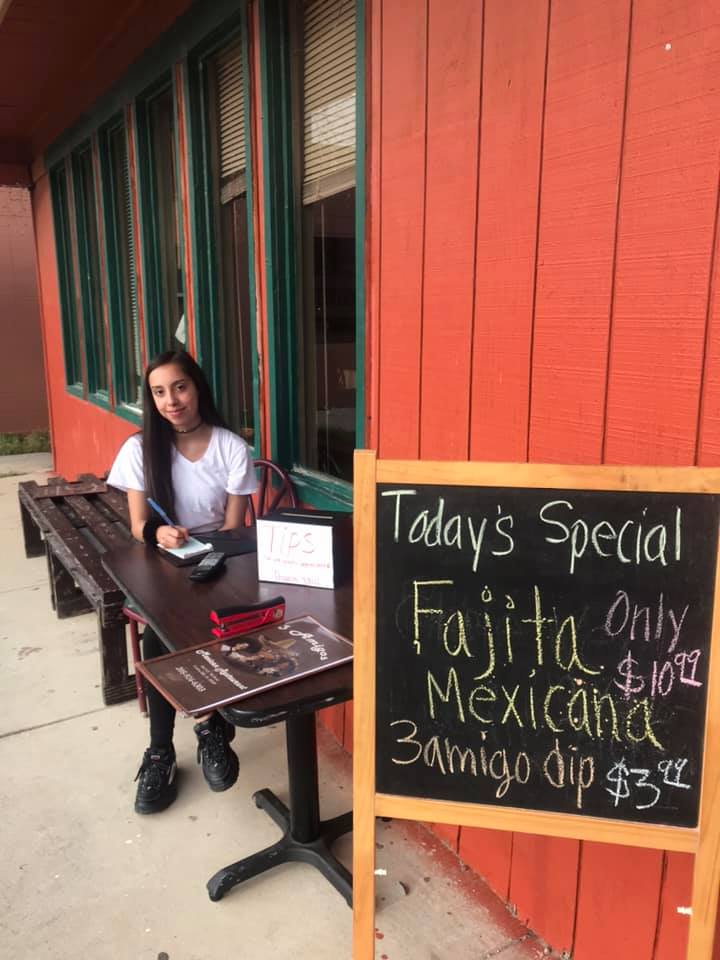 Today's Special
Fajita
Only
$10.99
Mexicana
3amigo dip $3.99
TIPS
3 Amigos
Mexican Restaurant